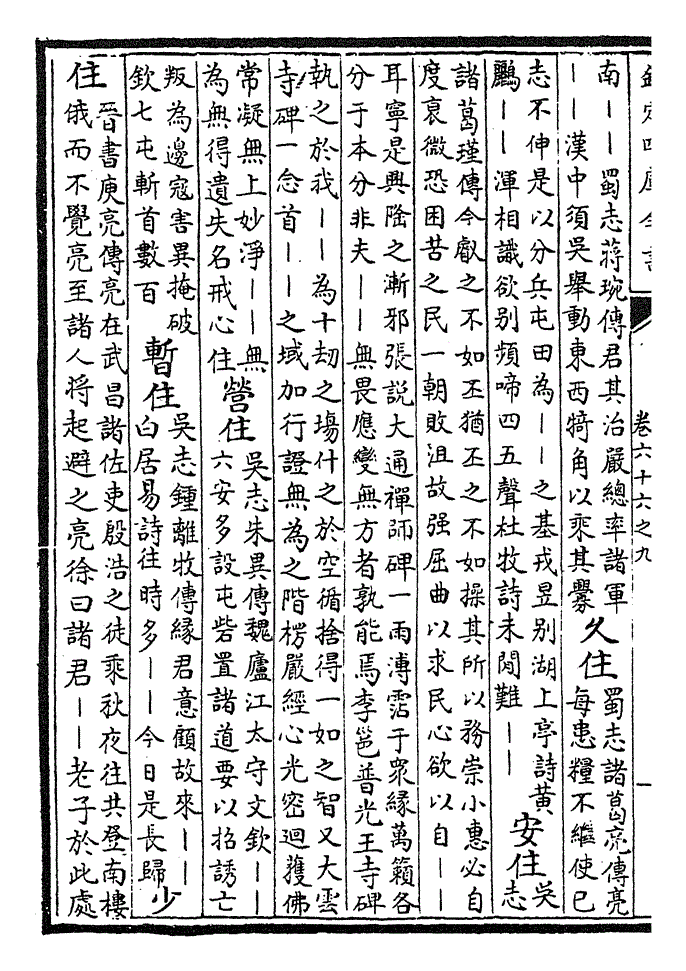 欽定四庫全書 卷六十六之九 一
南——蜀志蔣琬傳君其治嚴總率諸軍
——漢中須吳舉動東西犄角以乘其釁
久住
蜀志諸葛亮傳亮
每患糧不繼使已
志不伸是以分兵屯田為——之基戎昱別湖上亭詩黃
鸝——渾相識欲別頻啼四五聲杜牧詩未閒難——
安住
吳
志
諸葛瑾傳今叡之不如丕猶丕之不如操其所以務崇小惠必自
度衰微恐困苦之民一朝敗沮故强屈曲以求民心欲以自——
耳寧是興隆之漸邪張說大通禪師碑一雨溥霑于衆緣萬籟各
分于本分非夫——無畏應變無方者孰能焉李邕普光王寺碑
執之於我——為十刼之場什之於空循捨得一如之智又大雲
寺碑一念首——之域加行證無為之階楞嚴經心光密迴獲佛
常凝無上妙淨——無
為無得遺失名戒心住
營住
吳志朱異傳魏廬江太守文欽——
六安多設屯砦置諸道要以招誘亡
叛為邊寇害異掩破
欽七屯斬首數百
暫住
吳志鍾離牧傳緣君意顧故來——
白居易詩往時多——今日是長歸
少
住
晉書庾亮傳亮在武昌諸佐吏殷浩之徒乘秋夜往共登南樓
俄而不覺亮至諸人將起避之亮徐曰諸君——老子於此處